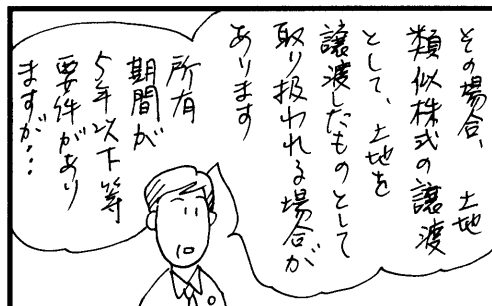 その場合、土地
類似株式の譲渡
として、土地を
譲渡したものとして
取り扱われる場合が
あります
所有
期間が
5年以下等
要件があり
ますが…